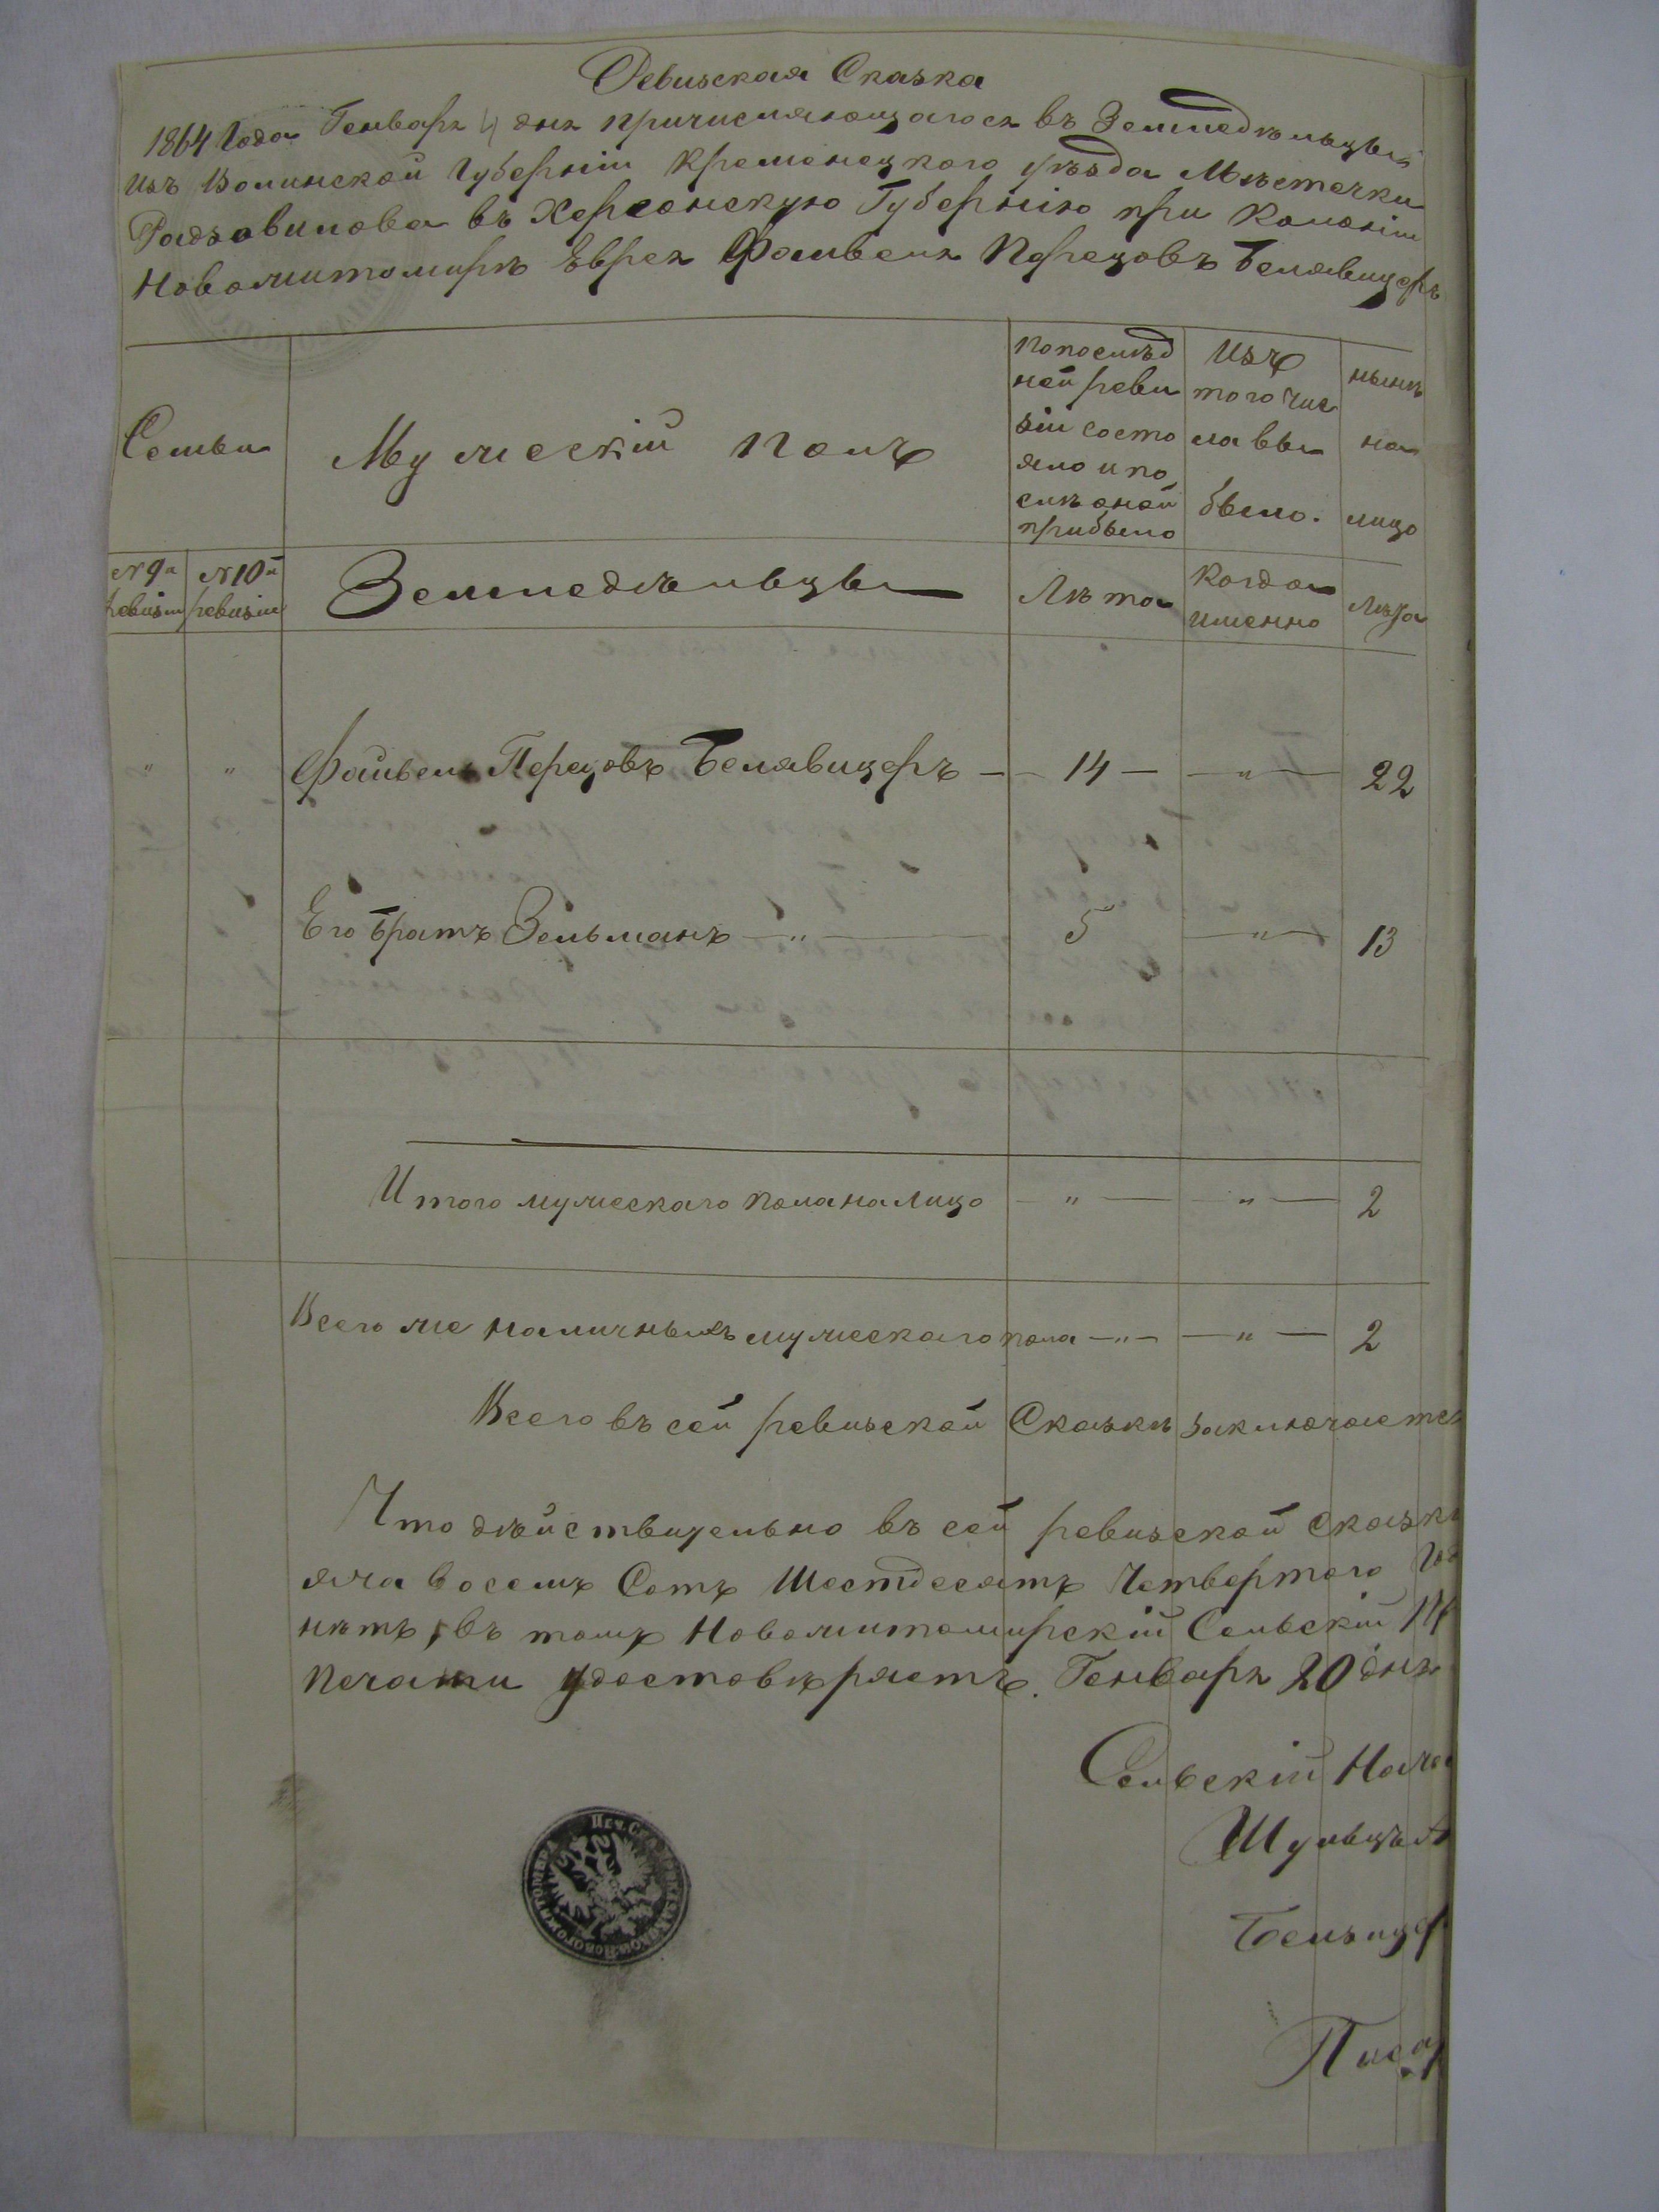 Ревизская Сказка
1864 Года Генваря 4 дня причисляющагося въ Земледельцы
Изъ Волинской Губерніи Кременецкого уѣзда Мѣстечки
Радзивилова въ Херсонскую Губернію при Колоніи
Новожитомирѣ Еврея Файвеля Перецовъ Белявицеръ
Семьи
Мужескій Полъ
Попослѣд
ней реви
зіи состо
яло и по
слѣ оной
прибыло
Изъ
того чис
ла вы
было.
нынѣ
на
лицо
№ 9й
ревизіи
№ 10й
ревизіи
Земледѣльцы
Лѣта
Когда
именно
Лѣта
" " Файвель Перецовъ Белявицеръ — 14 — " — 22
Его братъ Зельманъ — " — 5 — " — 13
Итого мужескаго пола налицо — " — " — 2
Всего же наличныхъ мужескаго пола — " — " — 2
Всего въ сей ревизской Сказкѣ заключается
Что дѣйствительно въ сей ревизской сказки
яча восемъ Сотъ Шестдесятъ Четвертого
нѣтъ, въ томъ Новожитомирскій Сельскій
Печати удостовѣряетъ. Генваря 20 дня
Сельскій
Шульцъ